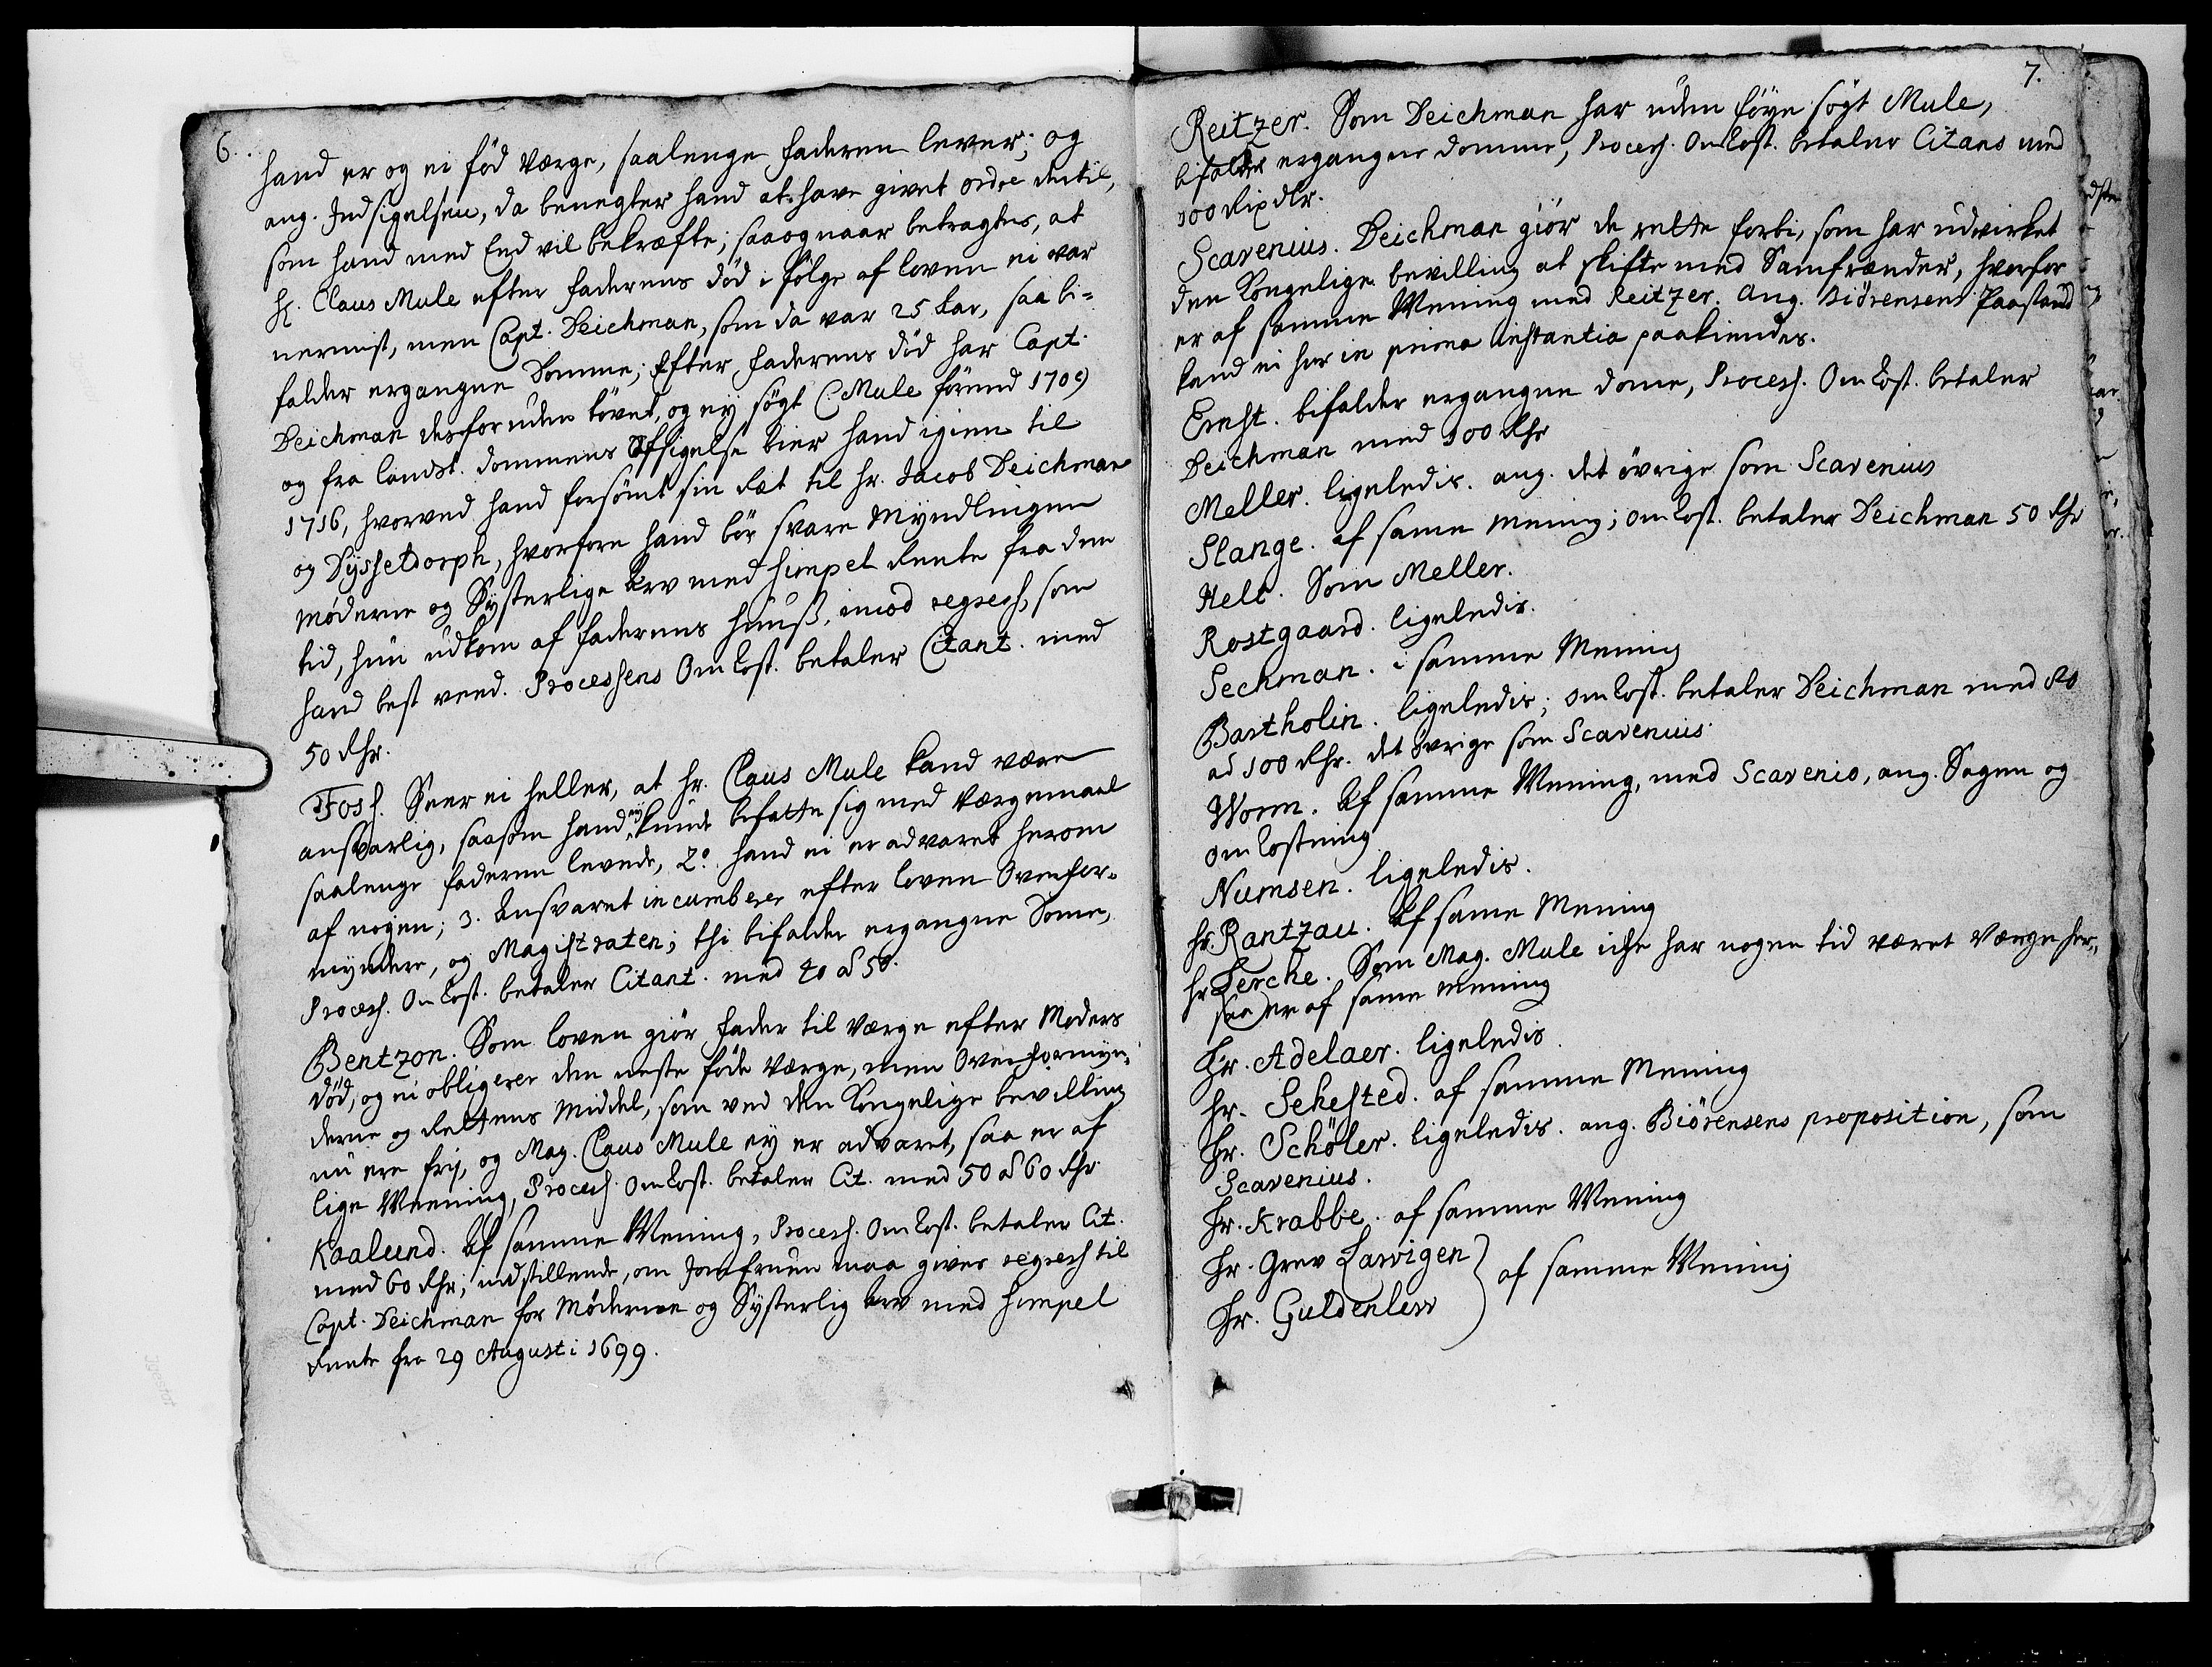 6.
hand er og ei fød Værge, saalenge faderen lever; og
ang. Indsigelsen, da benegter hand at have givet ordre dertil,
som hand med Eed vil bekræfte; saa og naar betragtes, at
H. Claus Mule efter faderens død i følge af loven ei var
nermest, men Capt. Deichman, som da var 25 Aar, saa bi-
falder ergangne Domme; Efter faderens død har Capt.
Deichman desforuden tövet, og ey søgt C Mule førend 1709
og fra landst. dommens Afsigelse tier hand igien til
1716, hvorved hand forsømt sin Ræt til hr. Jacob Deichman
og Dysseldorph, hvorfore hand bör svare Myndlingen
Møderne og Systerlige Arv med simpel Rente fra den
tid, hun udkom af faderens Huuß, imod regress, som
hand best veed. Processens Omkost. betaler Citant. med
50 Rdr.
Foss. Seer ei heller, at hr. Claus Mule kand være
ansvarlig, saasom hand ey kunde befatte sig med Værgemaal
saalenge faderen levede, 2o. hand ei er advaret herom
af nogen; 3. Ansvaret incumberer efter loven Overfor-
myndere, og Magistraten; thi bifalder ergangne Dome,
Process. Omkost. betaler Citant. med 40 a 50.
Bentzon. Som loven giør fader til Værge efter Moders
død, og ei obligerer den neste föde Værge, men Overformyn-
derne og Rettens Middel, som ved den Kongelige bevilling
nu ere frj, og Mag. Claus Mule ey er advaret, saa er af
lige Meening, Process. Omkost. betaler Cit. med 50 a 60 Rdr
Kaalund. Af samme Mening, Process. Omkost. betaler Cit.
med 60 Rdr; indstillende, om Jomfruen maa gives regress til
Capt. Deichman for Møderne og Systerlig Arv med simpel
Rente fra 29 Augusti 1699.
7.
Reitzer. Som Deichman har uden føye søgt Mule,
bifalder ergangne domme, Process. Omkost. betaler Citans med
100 Rixdlr.
Scavenius. Deichman giør de rette forbi, som har udvirket
den Kongelige bevilling at skifte med Samfrænder, hvorfor
er af samme Mening med Reitzer. Ang. Biörensens Paastand
kand ei her in prima instantia paakiendes.
Ernst. bifalder ergangne dome, Process. Omkost. betaler
Deichman med 100 Rdr
Meller. ligeledis. ang. det øvrige som Scavenius
Slange. af same mening; omkost. betaler Deichman 50 Rdr
Helt. Som Meller.
Rostgaard. ligeledis.
Sechman. i samme Mening
Bartholin. ligeledis; omkost. betaler Deichman med 80
ad 100 Rdr. det øvrige som Scavenius
Worm. Af samme Mening, med Scavenio, ang. Sagen og
omkostning
Numsen. ligeledis.
hr. Rantzau. Af same Mening
hr Lerche. Som Mag. Mule icke har nogen tid været Værge her,
saa er af same mening
Hr. Adelaer. ligeledis
hr. Sehested. af samme Mening
Hr. Schöller. ligeledis. ang. Biörensens proposition, som
Scavenius.
Hr. Krabbe. af samme Mening
Hr. Grev Larvigen
Hr. Guldenlew } af samme Mening